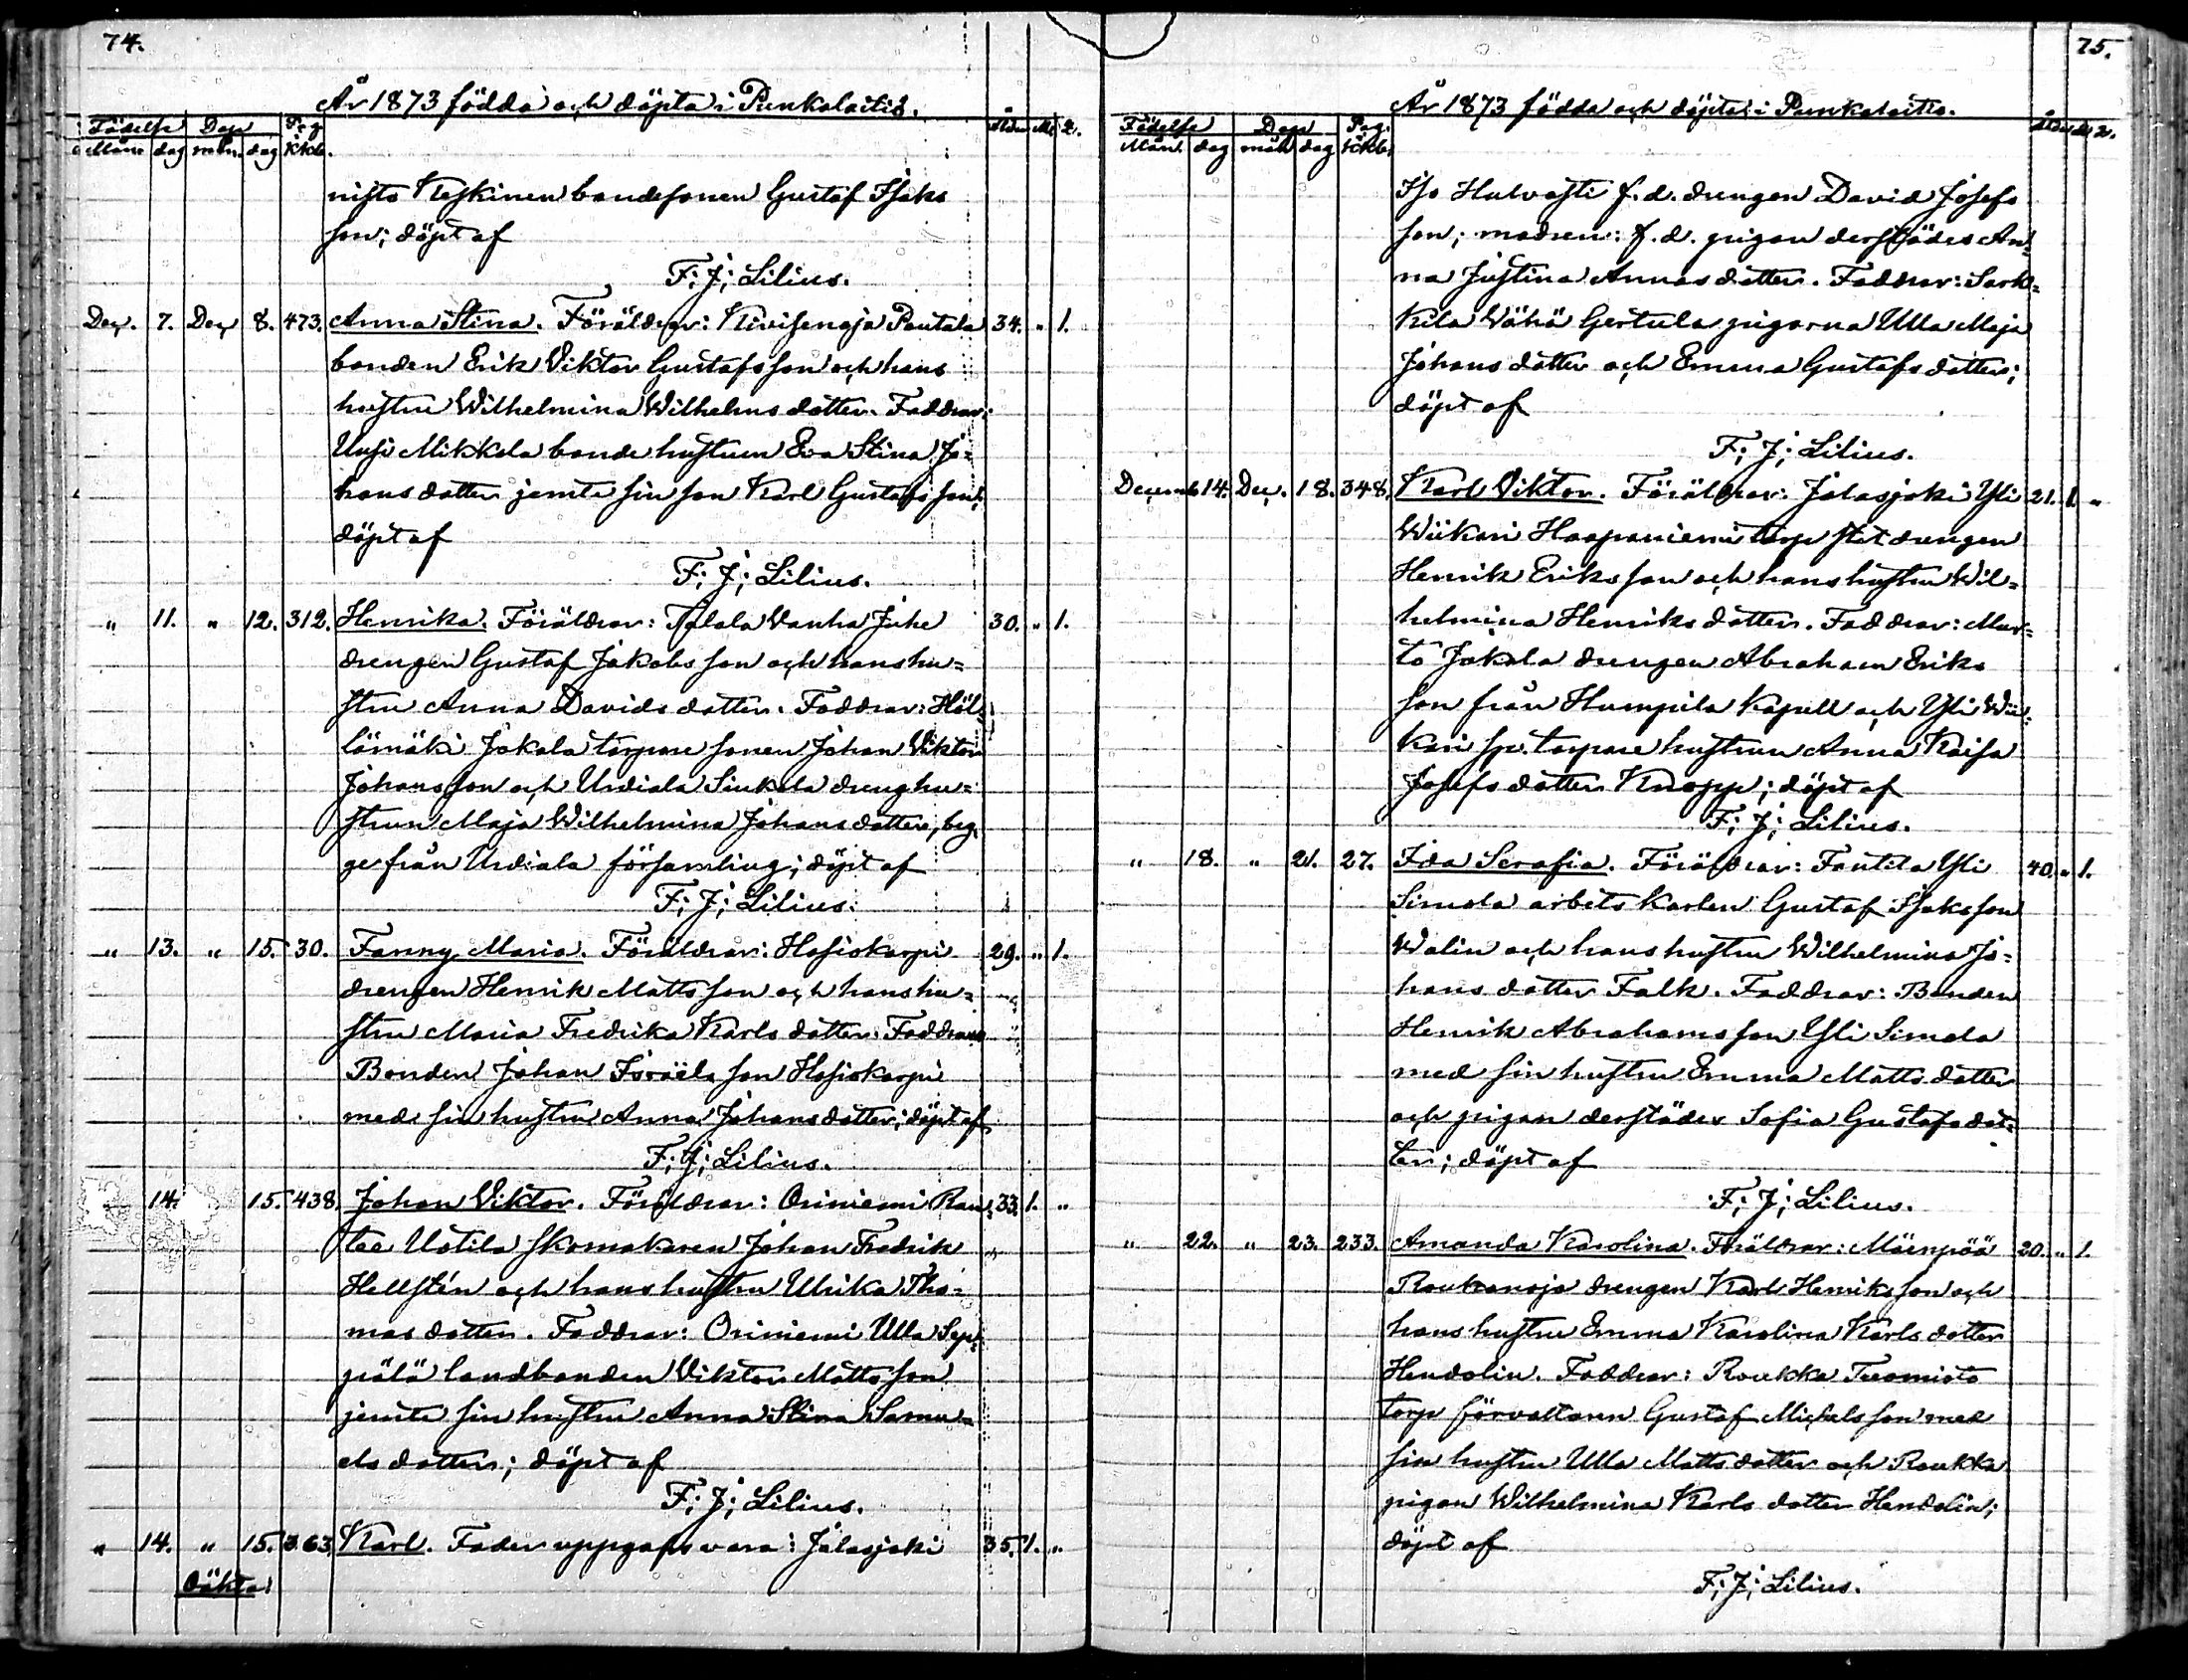 74.
År 1873 födda och döpta i Punkalaitis.
Födelse Dop Pag. Ålder M. Q.
Mån dag mån. dag Kkb.
nisto Keskinen bondesonen Gustaf Isaks
son; döpt af
F; J; Lilius.
Dec. 7. Dec 8. 473. Anna Stina. Föräldrar: Kivisenoja Pautala 34. " 1.
bonden Erik Viktor Gustafsson och hans
hustru Wilhelmina Wilhelmsdotter. Faddrar:
Uusi Mikkola bondehustrun Eva Stina Jo=
hansdotter jemte sin son Karl Gustafsson;
döpt af
F; J; Lilius.
" 11. " 12. 312. Henrika. Föräldrar: Talala Vanha Juhe 30. " 1.
drengen Gustaf Jakobsson och hans hu=
stru Anna Davidsdotter. Faddrar: Höl=
lämäki Jakala torpare sonen Johan Viktor
Johansson och Urdiala Sinkola drenghu=
strun Maja Wilhelmina Johansdotter, beg=
ge från Urdiala församling; döpt af
F; J; Lilius.
" 13. " 15. 30. Fanny Maria. Föräldrar: Hosioskarpi 29. " 1.
drengen Henrik Mattsson och hans hu=
stru Maria Fredrika Karlsdotter. Faddrar:
Bonden Johan Israelsson Hosiokarpi
med sin hustru Anna Johansdotter; döpt af
F; J; Lilius.
14. 15. 438. Johan Viktor. Föräldrar: Oriniemi Ran= 33. 1. "
tee Uotila skomakaren Johan Fredrik
Hellstén och hans hustru Ulrika Tho=
masdotter. Faddrar: Oriniemi Ulla Sep=
pälä landbonden Viktor Mattsson
jemte sin hustru Anna Stina Samu=
elsdotter; döpt af
F; J; Lilius.
" 14. " 15. 363. Karl. Fader uppgafs vara: Jalasjoki 35. 1. "
Oäkta!
75.
År 1873 födda och döpta i Punkalaitis.
Födelse Dop Pag. Ålder M. Q.
Mån. dag mån dag Kkb.
Iso Hulvasti f. d. drengen David Josefs
son; modren: f. d. pigan derstädes An=
na Justina Annasdotter. Faddrar: Sark=
kila Vähä Gertula pigorna Ulla Maja
Johansdotter och Emma Gustafsdotter;
döpt af
F; J; Lilius.
Decemb. 14. Dec. 18. 348. Karl Viktor. Föräldrar: Jalasjoki Yli 21. 1. "
Wiikari Haapaniemi torp statdrengen
Henrik Eriksson och hans hustru Wil=
helmina Henriksdotter. Faddrar: Mur=
to Jakola drengen Abraham Eriks
son från Humpila Kapell och Yli Wii=
kari sp. torpare hustrun Anna Kaisa
Josefsdotter Knapp; döpt af
F; J; Lilius.
" 18. " 21. 27. Ida Serafia. Föräldrar: Fantila Yli 40. " 1.
Simola arbetskarlen Gustaf Isaksson
Walin och hans hustru Wilhelmina Jo=
hansdotter Falk. Faddrar: Bonden
Henrik Abrahamsson Yli Simola
med sin hustru Emma Mattsdotter
och pigan derstädes Sofia Gustafsdot=
ter; döpt af
F; J; Lilius.
" 22. " 23. 233. Amanda Karolina. Föräldrar: Mäenpää 20. " 1.
Roukanoja drengen Karl Henriksson och
hans hustru Emma Karolina Karlsdotter
Hendolin. Faddrar: Roukka Tuomisto
torp förvaltaren Gustaf Michelsson med
sin hustru Ulla Mattsdotter och Roukka
pigan Wilhelmina Karlsdotter Hendolin;
döpt af
F; J; Lilius.